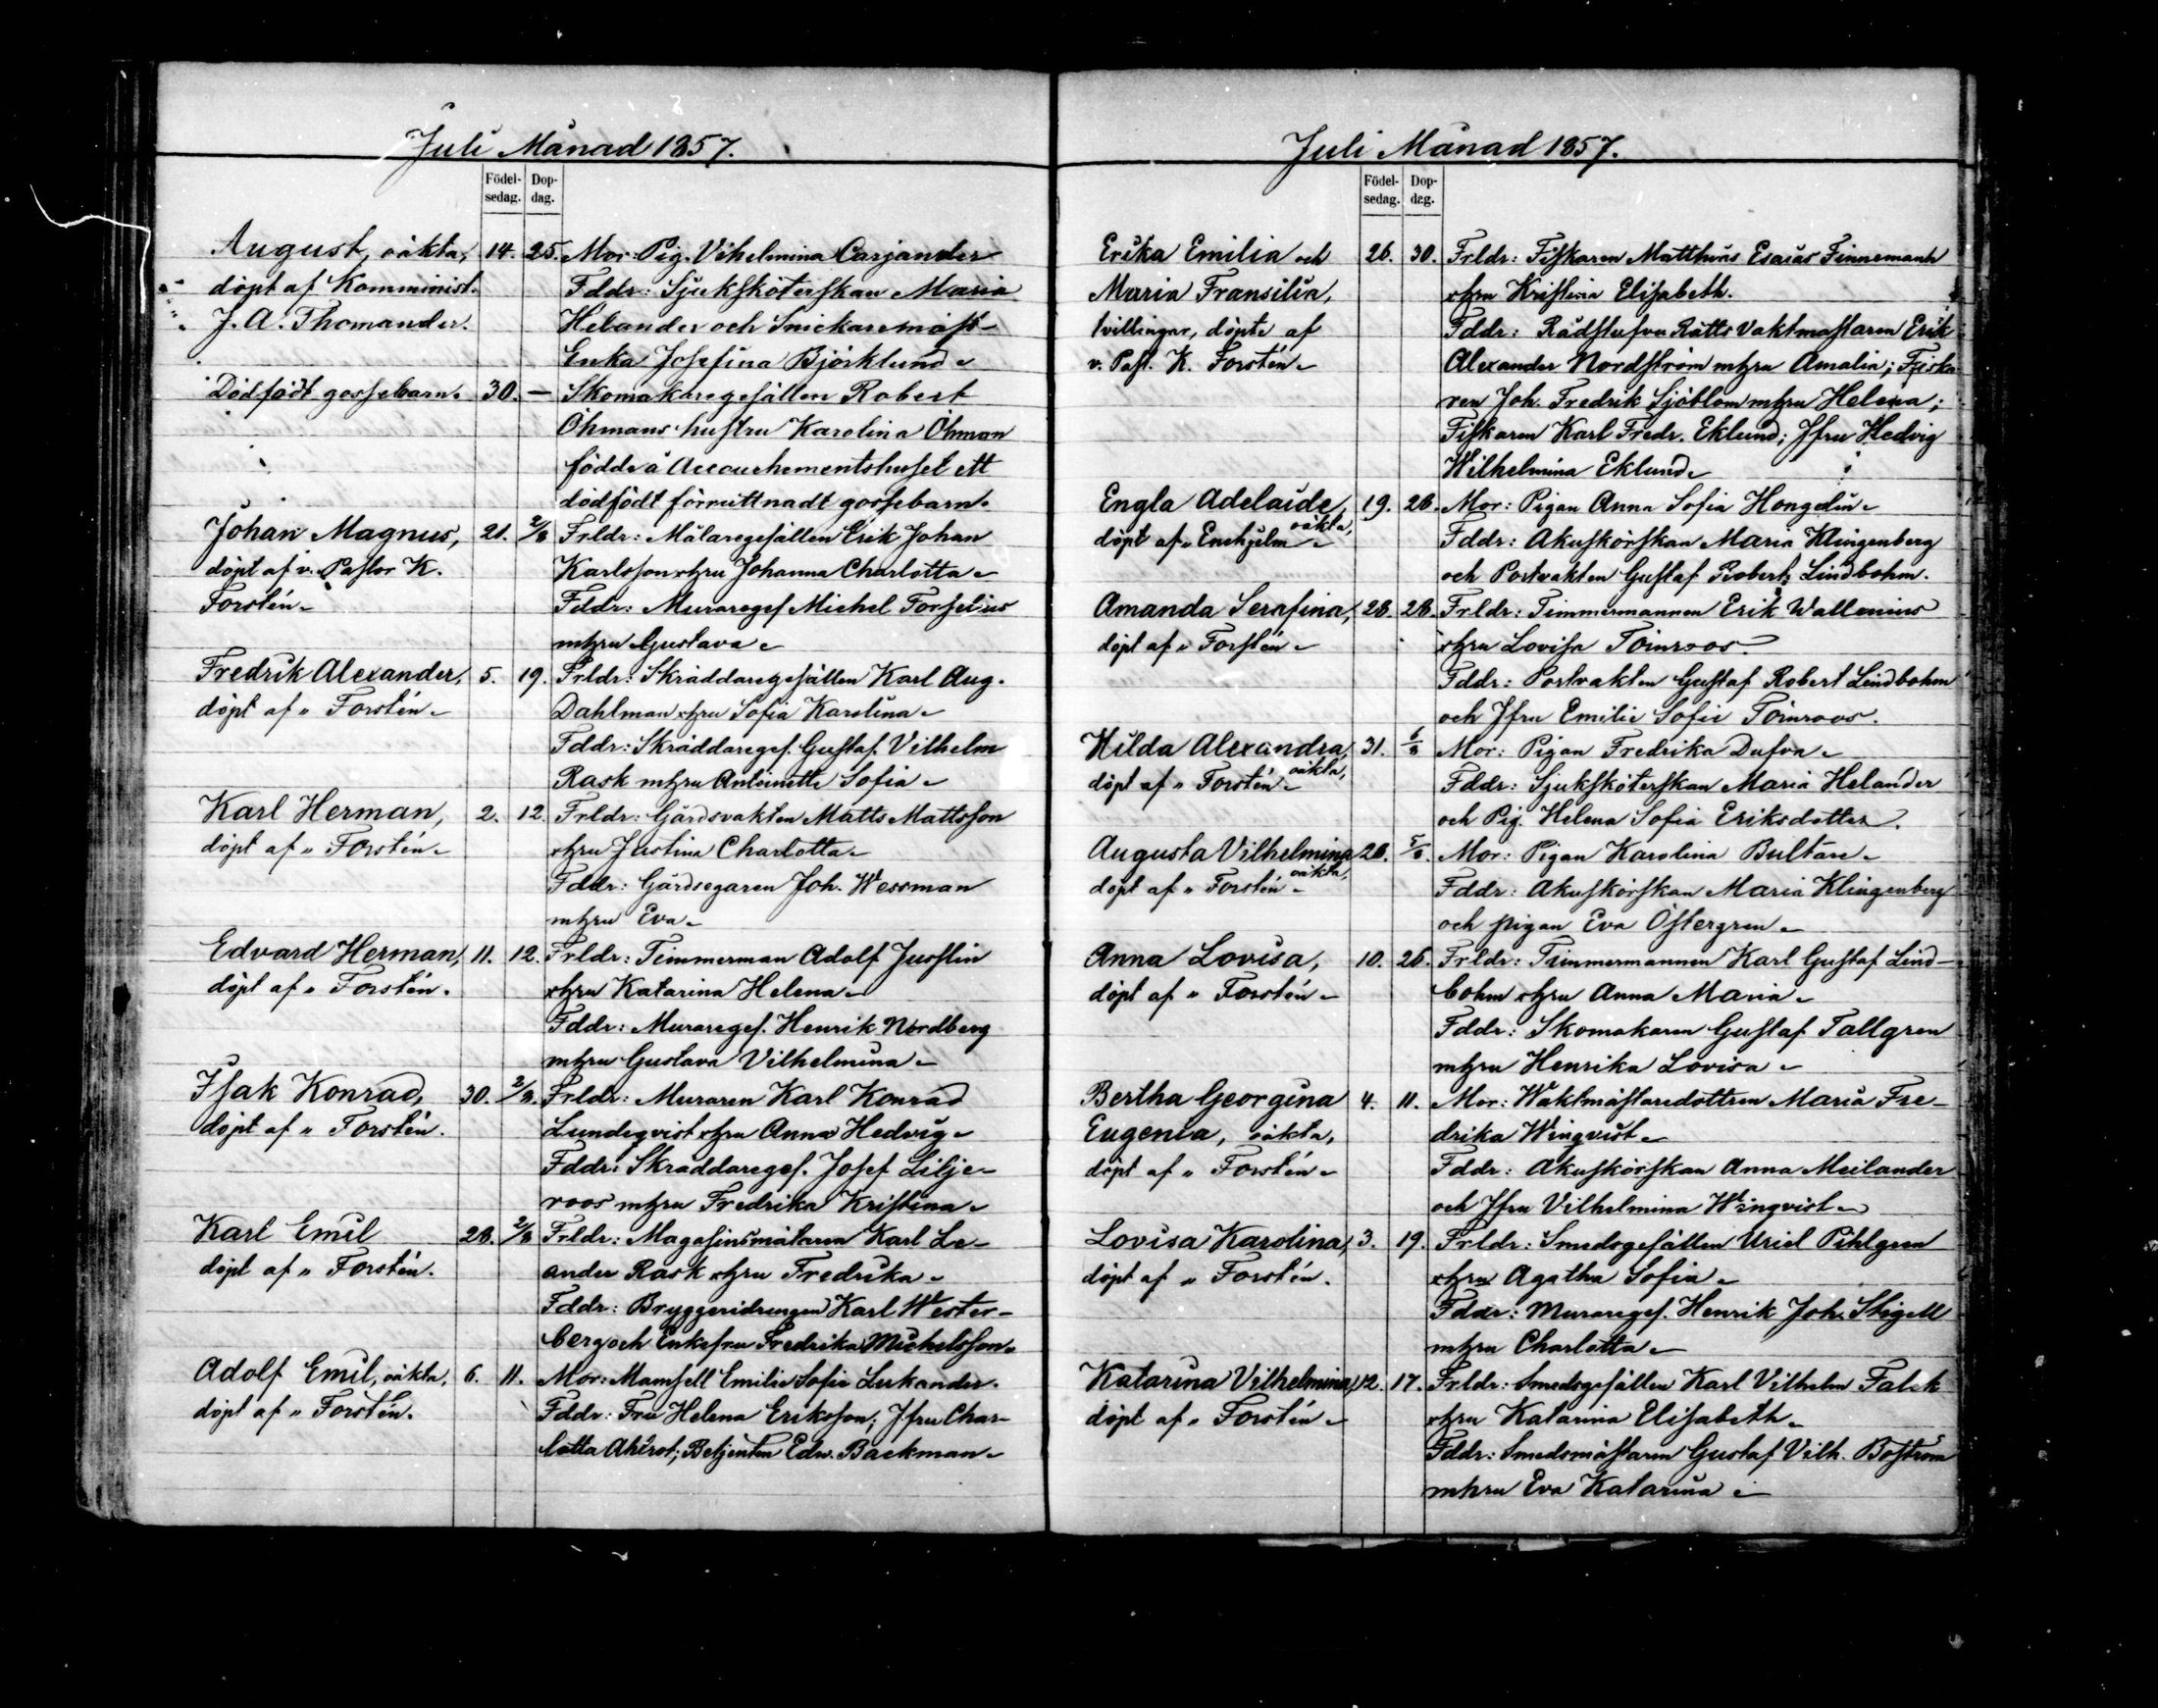 Juli Månad 1857.
Födel-
sedag.
Dop-
dag.
August, oäkta, 14. 25. Mor: Pig. Vilhelmina Carjander
döpt af Komminist. Fddr: Sjuksköterskan Maria
J. A. Thomander. Helander och Snickaremäst-
Enka Josefina Björklund
Dödfödt gossebarn. 30. — Skomakaregesällen Robert
Öhmans hustru Karolina Öhman
födde å Accouchementshuset ett
dödfödt förruttnadt gossebarn.
Johan Magnus, 21. 2/8 Frldr: Målaregesällen Erik Johan
döpt af v. Pastor K. Karlsson o hru Johanna Charlotta
Forstén Fddr: Muraregef Michel Forselius
m hru Gustava
Fredrik Alexander, 5. 19. Frldr: Skräddaregesällen Karl Aug.
döpt af " Forstén Dahlman o hru Sofia Karolina
Fddr: Skräddareges. Gustaf Vilhelm
Rask m hru Antoinette Sofia
Karl Herman, 2. 12. Frldr: Gårdsvakten Matts Mattsson
döpt af " Forstén o hru Justina Charlotta
Fddr: Gårdsegaren Joh. Wessman
m hru Eva
Edvard Herman, 11. 12. Frldr: Timmerman Adolf Jusslin
döpt af " Forstén. o hru Katarina Helena
Fddr: Murareges. Henrik Nordberg
m hru Gustava Vilhelmina
Isak Konrad, 30. 2/8. Frldr: Muraren Karl Konrad
döpt af " Forstén. Lundeqvist o hru Anna Hedvig
Fddr: Skräddareges. Josef Lilje-
roos m hru Fredrika Kristina
Karl Emil 28. 2/8 Frldr: Magasinsmätaren Karl Le-
döpt af " Forstén. ander Rask o hru Fredrika
Fddr: Bryggeridrengen Karl Wester-
berg och Enkefru Fredrika Michelsson
Adolf Emil, oäkta, 6. 11. Mor: Mamsell Emilie Sofie Lerkander.
döpt af " Forstén. Fddr: Fru Helena Eriksson; Jfru Char-
lotta Ahlrot; Betjenten Edv. Backman
Juli Månad 1857.
Födel-
sedag.
Dop-
dag.
Erika Emilia och 26. 30. Frldr: Fiskaren Matthias Esaias Finnemann
Maria Fransilia, o hru Kristina Elisabeth.
tvillingar, döpte af Fddr: Rådstufvu Rätts Vaktmästaren Erik
v. Past. K. Forstén Alexander Nordström m hru Amalia; Fiska-
ren Joh. Fredrik Sjöblom m hru Helena;
Fiskaren Karl Fredr. Eklund; Jfru Hedvig
Wilhelmina Eklund
Engla Adelaide, 19. 26. Mor: Pigan Anna Sofia Hongelin
oäkta,
döpt af " Enehjelm Fddr: Akuskörskan Maria Klingenberg
och Portvakten Gustaf Robert Lindbohm.
Amanda Serafina, 28. 28. Frldr: Timmermannen Erik Wallenius
döpt af " Forstén o hru Lovisa Törnroos
Fddr: Portvakten Gustaf Robert Lindbohm
och Jfru Emilie Sofie Törnroos.
Hilda Alexandra, 31. 6/8 Mor: Pigan Fredrika Dufva
oäkta,
döpt af " Forstén Fddr: Sjuksköterskan Maria Helander
och Pig. Helena Sofia Eriksdotter.
Augusta Vilhelmina 28. 5/8. Mor: Pigan Karolina Bultare
oäkta,
döpt af " Forstén Fddr: Akuskörskan Maria Klingenberg
och pigan Eva Östergren
Anna Lovisa, 10. 26. Frldr: Timmermannen Karl Gustaf Lind-
döpt af " Forstén bohm o hru Anna Maria
Fddr: Skomakaren Gustaf Tallgren
m hru Henrika Lovisa
Bertha Georgina 4. 11. Mor: Waktmästaredottren Maria Fre-
Eugenia, oäkta, drika Wingvist
döpt af " Forstén Fddr: Akuskörskan Anna Meilander
och Jfru Vilhelmina Wingvist
Lovisa Karolina, 3. 19. Frldr: Smedsgesällen Uriel Pihlgren
döpt af " Forstén. o hru Agatha Sofia
Fddr: Murareges. Henrik Joh. Stigell
m hru Charlotta
Katarina Vilhelmina, 12. 17. Frldr: Smedsgesällen Karl Vilhelm Falck
döpt af " Forstén o hru Katarina Elisabeth
Fddr: Smedsmästaren Gustaf Vilh. Boström
m hru Eva Katarina